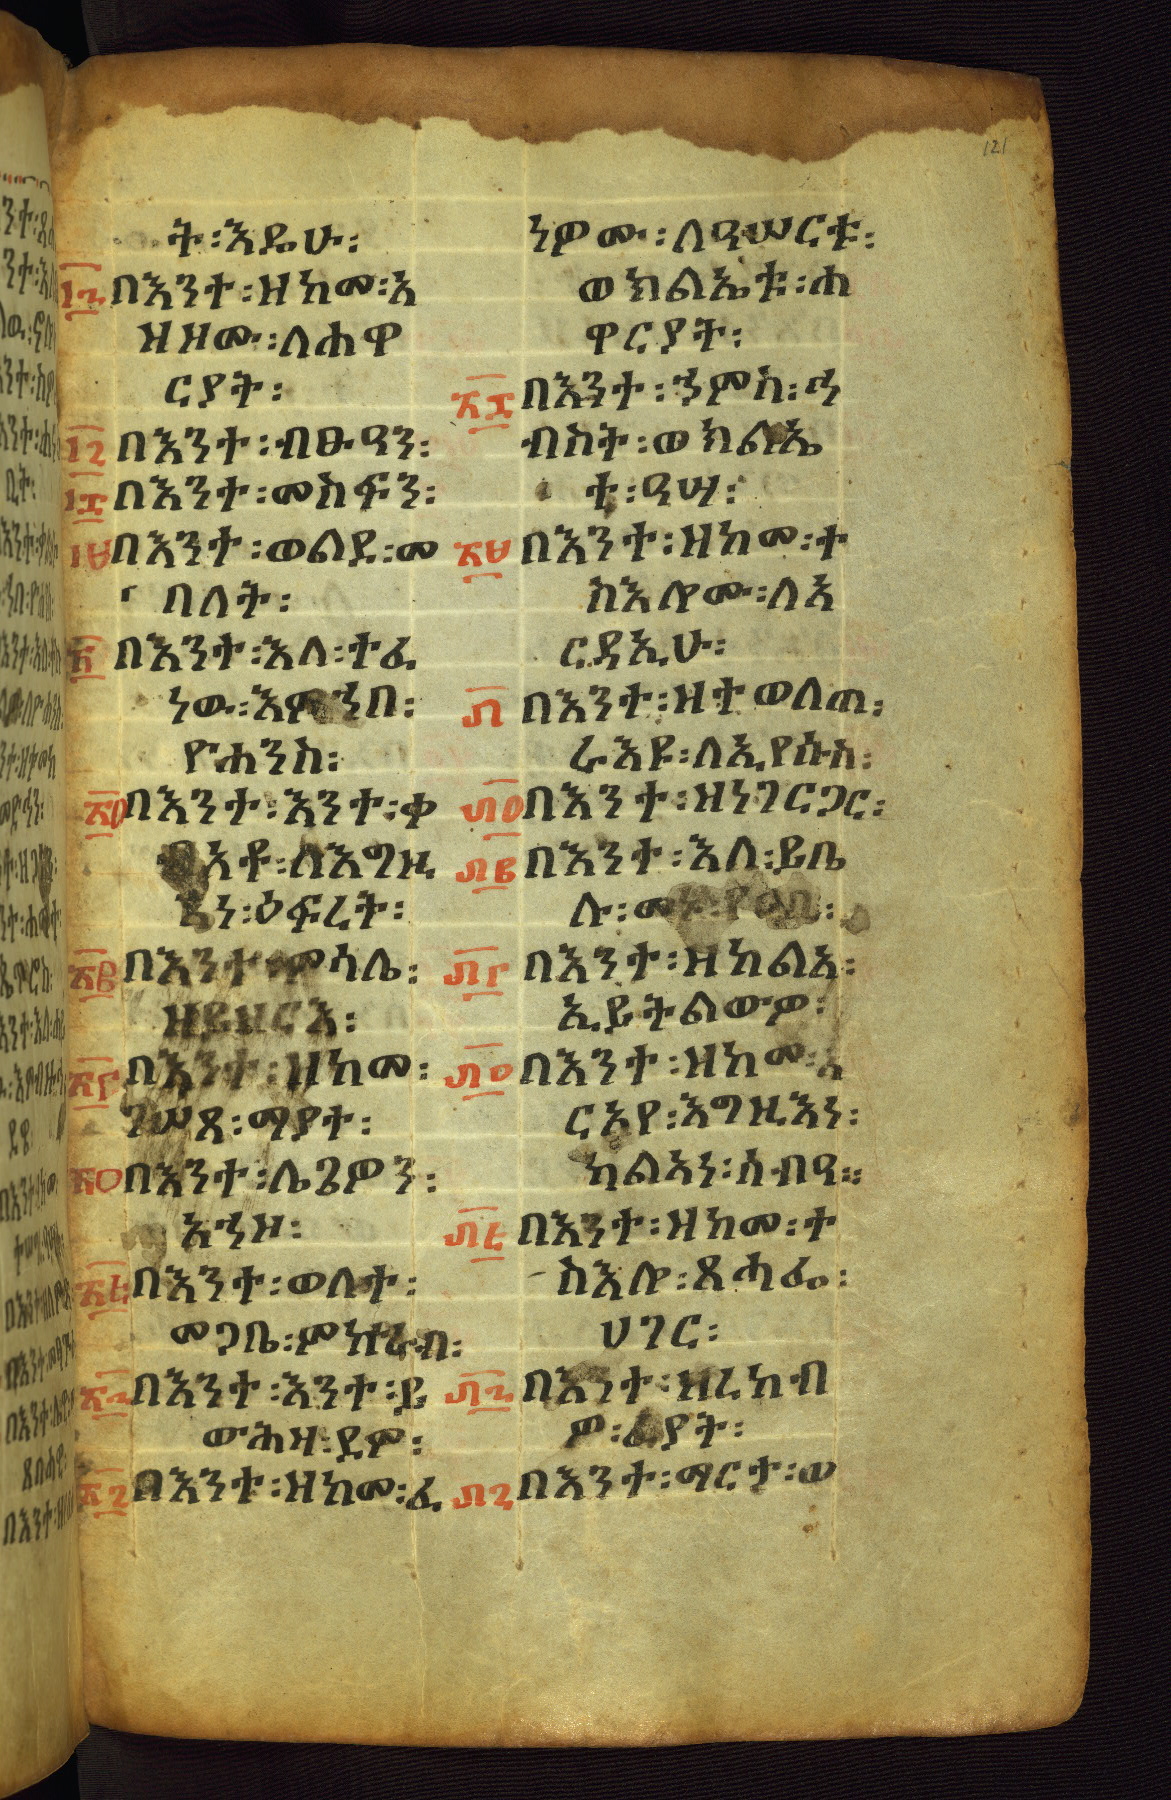 121
ት፡እዴሁ፡
፲፮በእንተ፡ዘከመ፡አ
ዝዘሙ፡ለሐዋ
ርያት፡
፲፯በእንተ፡ብፁዓን፡
፲፰በእንተ፡መስፍን፡
፲፱በእንተ፡ወልደ፡መ
በለት፡
፳በእንተ፡እለ፡ተፈ
ነው፡እምኀበ፡
ዮሐንስ፡
፳፩በእንተ፡እንተ፡ቀ
ብአቶ፡ለእግዚ
እነ፡ዕፍረት፡
፳፪በእንተ፡ምሳሌ፡
ዘይዘርእ፡
፳፫በእንተ፡ዘከመ፡
ገሠጸ፡ማያተ፡
፳፬በእንተ፡ሌጌዎን፡
አኀዘ፡
፳፭በእንተ፡ወለተ፡
መጋቤ፡ምኵራብ፡
፳፮በእንተ፡እንተ፡ይ
ውሕዛ፡ደም፡
፳፯በእንተ፡ዘከመ፡ፈ
ነዎሙ፡ለዓሠርቱ፡
ወክልኤቱ፡ሐ
ዋርያት፡
፳፰በእንተ፡ኀምስ፡ኅ
ብስት፡ወክልኤ
ተ፡ዓሣ፡
፳፱በእንተ፡ዘከመ፡ተ
ስእሎሙ፡ለአ
ርዳኢሁ፡
፴በእንተ፡ዘተወለጠ፡
ራእዩ፡ለኢየሱስ፡
፴፩በእንተ፡ዘነገርጋር፡
፴፪በእንተ፡እለ፡ይቤ
ሉ፡
፴፫በእንተ፡ዘከልአ፡
ኢይትልውዎ፡
፴፬በእንተ፡ዘከመ፡አ
ርአየ፡እግዚእነ፡
ካልአነ፡ሰብዓ።
፴፭በእንተ፡ዘከመ፡ተ
ስእሎ፡ጸሓፌ፡
ሀገር፡
፴፮በእንተ፡ዘረከብ
ዎ፡ፈያት፡
፴፯በእንተ፡ማርታ፡ወ